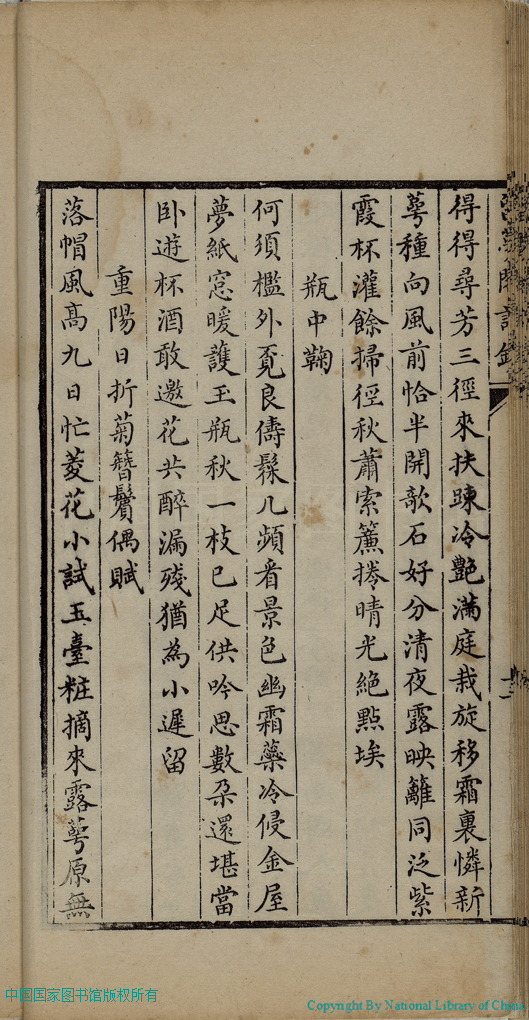 得得尋芳三徑來扶踈冷艷滿庭栽旋移霜裏憐新
萼種向風前恰半開欹石好分清夜露映籬同泛紫
霞杯灌餘掃徑秋蕭索簾捲晴光絶點埃
瓶中鞠
何須檻外覓良儔髹几頻看景色幽霜蘂冷侵金屋
夢紙窓暖護玉瓶秋一枝已足供吟思數朶還堪當
卧遊杯酒敢邀花共醉漏殘猶為小遲留
重陽日折菊簪鬢偶賦
落帽風高九日忙菱花小試玉臺粧摘來露萼原無
中国国家图书馆版权所有
Copyright By National Library of China